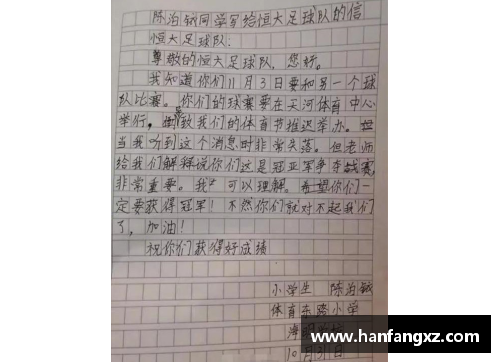 陈泊钺同学写给恒大足球队的信
恒大足球队:
尊敬的恒大足球队,您好。
我知道你们11月3日要和另一个球
队比赛。你们的球赛要在天河体育中心
举行,导致我们的体育节推迟举办。
当我听到这个消息时非常失落。但老师
给我们解释说你们这是冠亚军争夺战赛,
非常重要。我 可以理解。希望你们一
定要获得冠军!不然你们就对不起我们
了,加油!
祝你们获得好成绩
小学生 陈泊钺
体育东路小学
海明
10月31日
www.hanfangxz.com